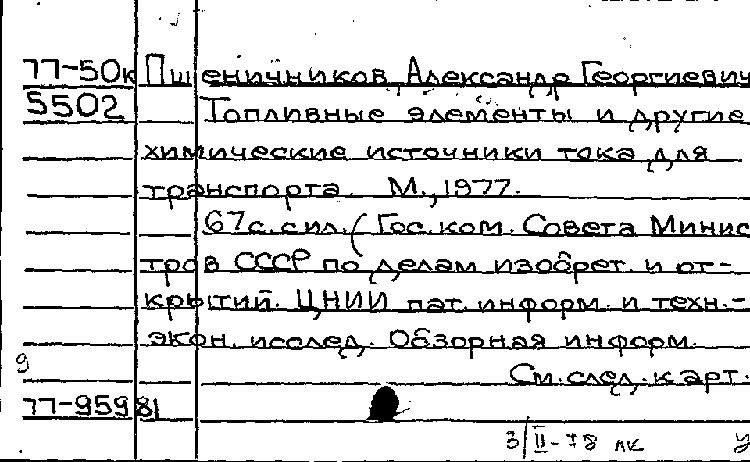 77-50к Пшеничников, Александр Георгиевич
5502 Топливные элементы и другие
химические источники тока для
транспорта. М., 1977.
67с. с ил. (Гос. ком. Совета Минис
тров СССР по делам изобрет. и от-
крытий. ЦНИИ пат. информ. и техн.-
экон. исслед. Обзорная информ.
9
См. след. карт.
77-95981
3/II-78 лк